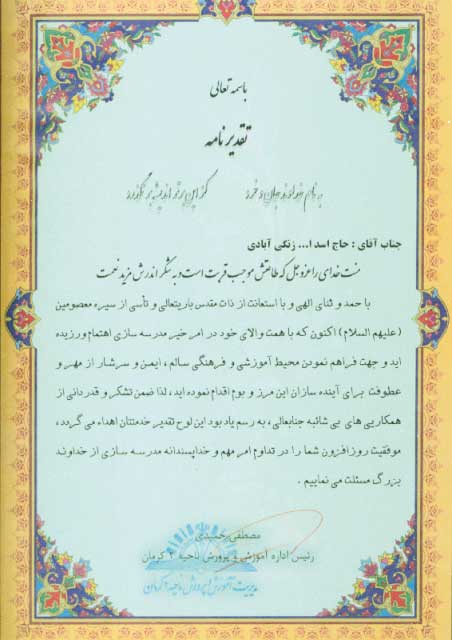 باسمه تعالی
تقدیرنامه
به نام خداوند جان و خرد کزین برتر اندیشه بر نگذرد
جناب آقای : حاج اسد ا... زنگی آبادی
منت خدای را عزوجل که طاعتش موجب قربت است و به شکر اندرش مزید نعمت
با حمد و ثنای الهی و با استعانت از ذات مقدس باریتعالی و تأسی از سیره معصومین
(علیهم السلام) اکنون که با همت والای خود در امر خیر مدرسه سازی اهتمام ورزیده
اید و جهت فراهم نمودن محیط آموزشی و فرهنگی سالم، ایمن و سرشار از مهر و
عطوفت برای آینده سازان این مرز و بوم اقدام نموده اید، لذا ضمن تشکر و قدردانی از
همکاریی های بی شائبه جنابعالی، به رسم یادبود این لوح تقدیر خدمتتان اهداء می گردد،
موفقیت روزافزون شما را در تداوم امر مهم و خداپسندانه مدرسه سازی از خداوند
بزرگ مسئلت می نماییم .
مصطفی
رئیس اداره آموزش و پرورش ناحیه ۲ کرمان
مدیریت آموزش و پرورش ناحیه ۲ کرمان